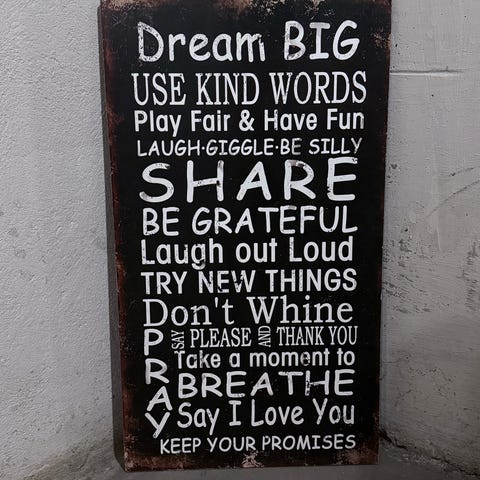 Dream BIG
USE KIND WORDS
Play Fair & Have Fun
LAUGH·GIGGLE·BE SILLY
SHARE
BE GRATEFUL
Laugh out Loud
TRY NEW THINGS
Don't Whine
SAY PLEASE AND THANK YOU
Take a moment to
BREATHE
PRAY
Say I Love You
KEEP YOUR PROMISES